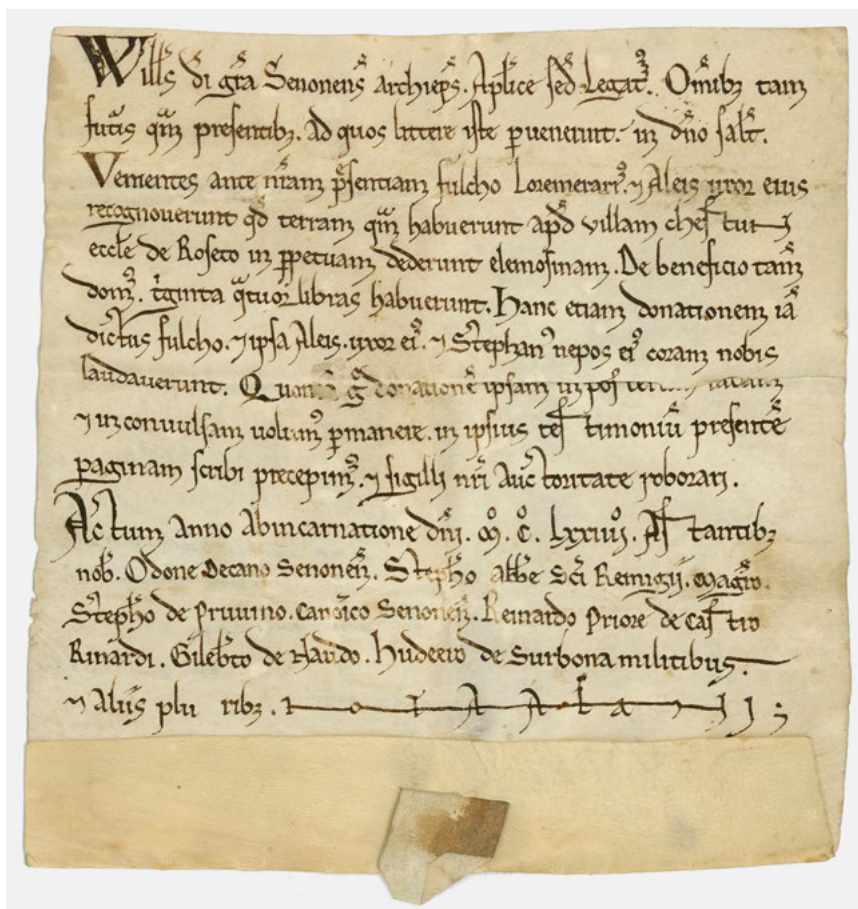 Wills di gra Senonens archieps. Aplice sed Legat. Omib; tam
futis qm presentib;. Ad quos littere iste pervenerint. in dno salt.
Venientes ante nram psentiam fulcho Loremerari9. ⁊ Aleis uxor eius
recognoverunt qd terram qm habuerunt apd villam chestur
eccle de Roseto in ppetuam dederunt elemosinam. De beneficio tam
dom9. tginta qtuor libras habuerunt. Hanc etiam donationem ia
dictus fulcho. ⁊ ipsa Aleis. uxor ei9. ⁊ Stephan9 nepos ei9 coram nobis
laudaverunt. g donatione ipsam in
⁊ inconvulsam volum9 pmanere. in ipsius testimoniu presente
paginam scribi precepim9. ⁊ sigilli nri Auctoritate roborari.
Actum Anno Abincarnatione dni. M. C. Lxxiiii. Astantib;
nob. Odone Decano Senonen. Stepho abbe Sci Remigii. Magro
Stepho de Pruvino. canoico Senonen. Reinardo Priore de castro
Rinardi. Gilebto de de Surbona militibus.
⁊ Aliis plu rib;.